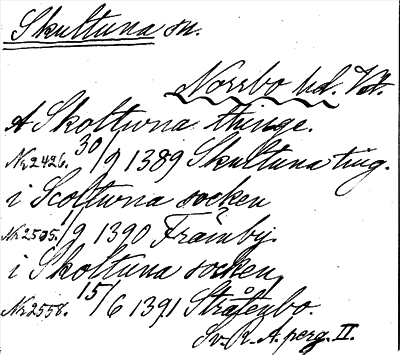 Skultuna sn.
Norrbo hd. Vst.
A Skoltwna thinge.
Nr 2426. 30/9 1389 Skultuna ting.
i Scoltwna socken
Nr 2505. 1/9 1390 Främby.
i Skoltuna socken
Nr 2558. 15/6 1391 Stråtenbo.
Sv. R. A. perg. II.